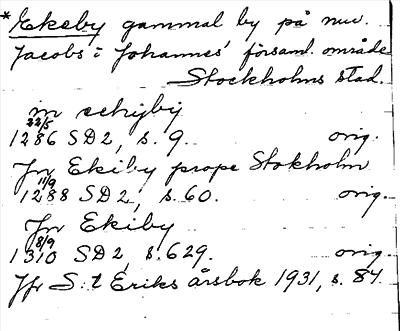 * Ekeby gammal by på nuv.
Jacobs i Johannes' församl. område
Stockholms stad.
in echyby
22/5
1286 SD 2, s. 9. orig.
Jn Ekiby prope Stokholm
11/9
1288 SD 2, s. 60. orig.
Jn Ekiby
8/9
1310 SD 2, s. 629. orig.
Jfr S:t Eriks årsbok 1931, s. 84.